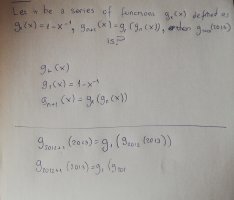 Let n be a series of functions gₙ(x) defined as
g₁(x)=1-x⁻¹, gₙ₊₁(x)=g₁(gₙ(x)), then g (2013)
is?
gₙ(x)
g₁(x)=1-x⁻¹
gₙ₊₁(x)=g₁(gₙ(x))
g₂₀₁₂₊₁(2013)=g₁(g₂₀₁₂(2013))
g₂₀₁₂₊₁(2013)=g₁(g₂₀₁